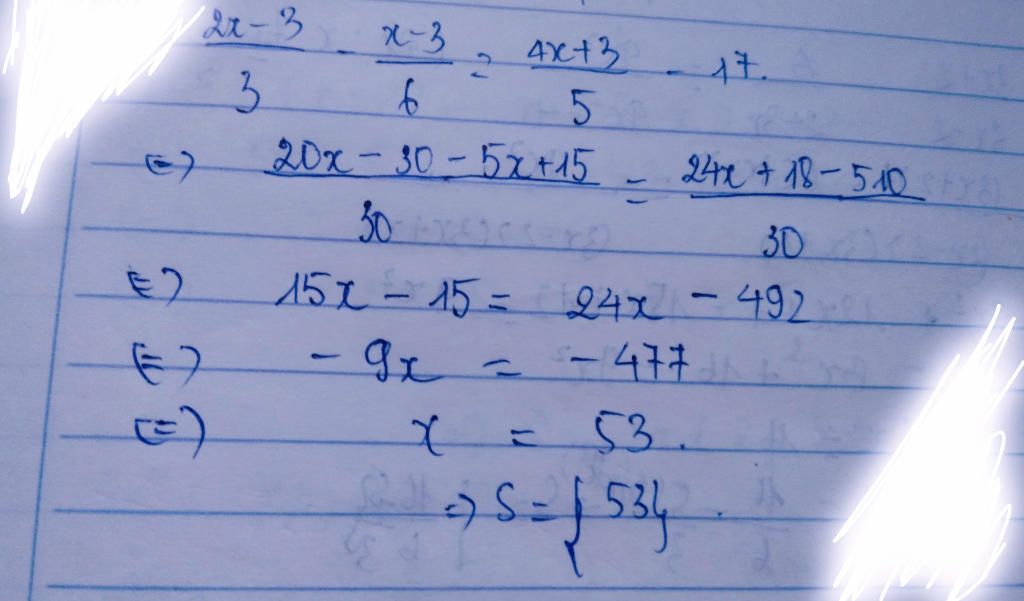 2x-3/3 - x-3/6 = 4x+3/5 - 17.
⇔ 20x - 30 - 5x + 15/30 = 24x + 18 - 510/30
⇔ 15x - 15 = 24x - 492
⇔ - 9x = - 477
⇔ x = 53.
⇒ S = {53}.